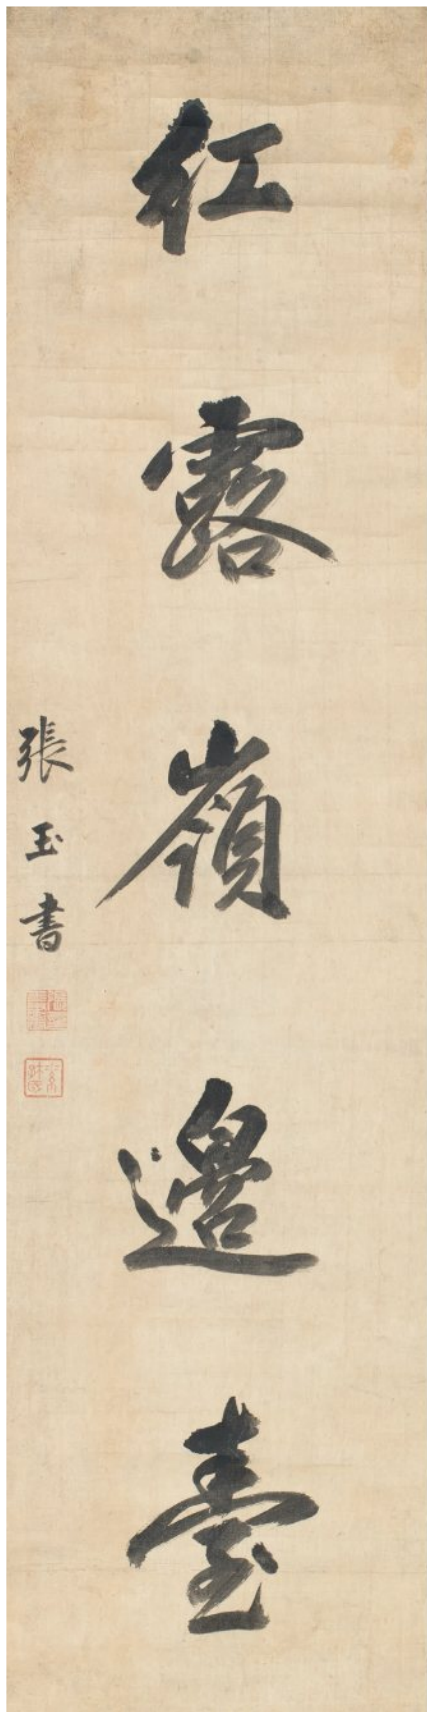 紅露嶺邊臺
張玉書